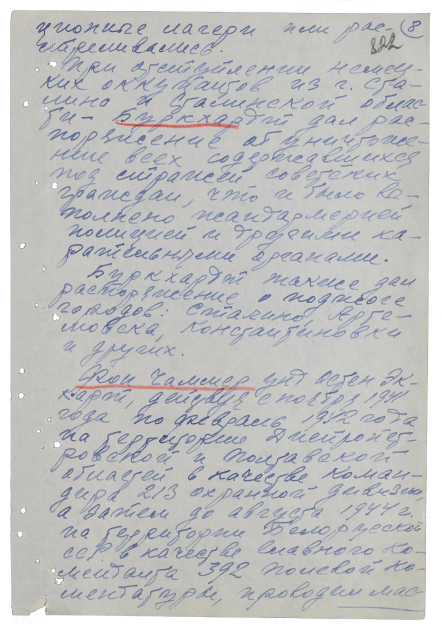 ционные лагери или рас-
8
822
стреливались.
При отступлении немец-
ких оккупантов из г. Ста-
лино и Сталинской облас-
ти - Буркхардт дал рас-
поряжение об уничтоже-
нии всех содержавшихся
под стражей советских
граждан, что и было вы-
полнено жандармерией
полицией и другими ка-
рательными органами.
Буркхардт также дал
распоряжение о поджоге
городов: Сталино, Арте-
мовска, Константиновки
и других.
Фон Чаммер унд Остен Эк-
кардт, действуя с ноября 1941
года по февраль 1942 года
на территории Днепропет-
ровской и Полтавской
областей в качестве коман-
дира 213 охранной дивизии,
а затем до августа 1944 г.
на территории Белорусской
ССР в качестве главного ко-
менданта 392 полевой ко-
мендатуры, проводил мас-